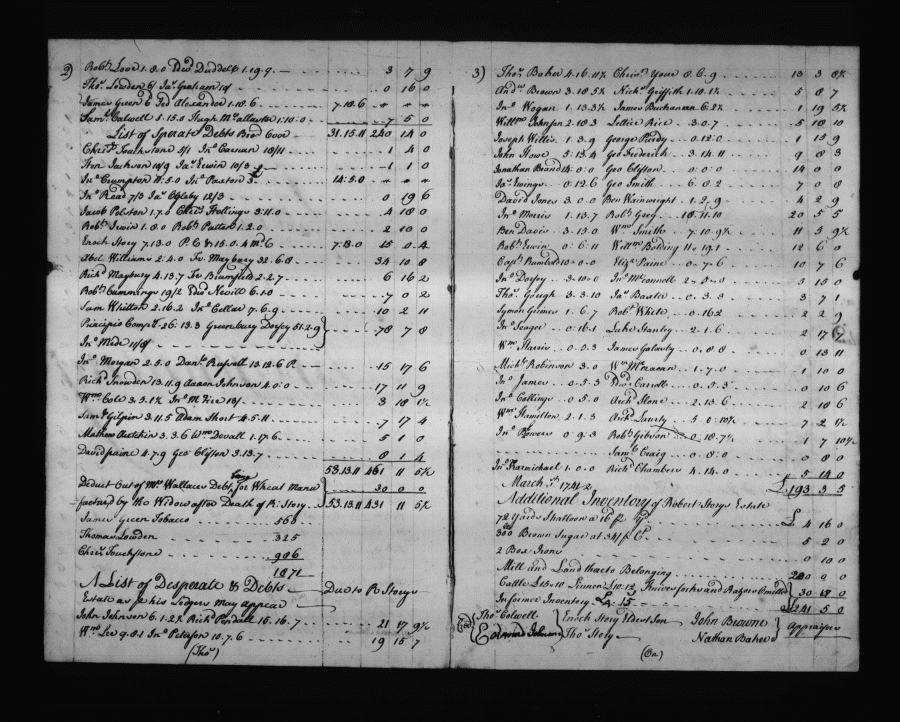 2)
Rob.t Love 1.8.0 Edw Duddell 1.19.9 3 7 9
Tho.s Lowden 6/ Ja.s Graham 10/ 0 16 0
James Green 6 Jed Alexander 1.18.6 7.18.6
Sam.l Calwell 5.15.0 Hugh McCallaster 1.10.0 7 5 0
List of Sperate Debts Bro.t Over 31.15.11 240 14 0
Chris.r Touchstone 5/1 Jn.o Carnan 18/11 1 4 0
Hen Jackson 10/9 Ja.s Erwin 10/3 1 1 0
Jn.o Crumpton 11.5.0 Jn.o Paxton 3 14.5.0
Jn.o Read 7/3 Ja.s Oglsby 12/3 0 19 6
Jacob Polston 1.7.0 Chris.r Hollings 3.11.0 4 18 0
Rob.t Irwin 1.8.0 Rob.t Patten 1.2.0 2 10 0
Enoch Story 7.13.0 7.8.0 15 0 4
Abel Williams 2.4.0 Fr. Maybury 32.6.8 34 10 8
Rich.d Maybury 4.13.7 Fr Brumfield 2.2.7 6 16 2
Rob.t Cummings 19/2 Edw Nevill 6.1.0 7 0 2
Sam Whitton 2.16.2 Jn.o Cellar 7.6.9 10 2 11
Principio Comp.y 26.13.3 Greenbury Dorsey 51.2.9 78 7 8
Jn.o Mide 11/8
Jn.o Morgan 2.5.0 Dan.l Russell 13.12.6 15 17 6
Rich.d Snowden 13.11.9 Aaron Johnson 4.0.0 17 11 9
W.m Cole 3.3.1½ Jn.o McFee 15/ 3 18 1½
Sam.l Gilpin 3.11.5 Adam Short 4.5.11 7 17 4
Mathew 3.3.6 W.m Devall 1.17.6 5 1 0
David paine 4.7.9 Geo Clifton 3.13.7 8 1 4
53.13.11 461 11 5½
Deduct Out of Mr. Wallace Debt, being for Wheat Manu 30 0 0
factured by the Widow after Death of R: Story 53.13.11 431 11 5½
James Green Tobacco 560
Thomas Lowden 325
Chris.r Touchstone 986
1871
A List of Desperate Debts Due to R Storys
Estate as p his Ledgers May Appear
John Johnson 6.1.2½ Rich.d Pardall 15.16.7 21 17 9½
W.m Lee 9.8.1 Jn.o Peterson 10.7.6 19 15 7
(Tho.s)
3)
Tho.s Baker 4.16.11½ Chris.r Your 8.6.9 13 3 8½
And.w Brown 3.18.5½ Nich.s Griffith 1.18.1½ 5 8 7
Jn.o Wogan 1.13.3½ James Buchanan 6.2½ 1 19 5½
Will.m Johnson 2.18.3 Lettice Rice 3.0.7 5 18 10
Joseph Willis 1.3.9 George Purdy 0.12.0 1 15 9
John Howe 5.13.4 Geo Frederick 3.14.11 9 8 3
Jonathan Brand 14.0.0 Geo Clifton 0.0.0 14 0 0
Ja.s Ewings 0.12.6 Geo Smith 6.8.2 7 0 8
David Jones 3.0.0 Ben Wainwright 1.2.9 4 2 9
Jn.o Morris 1.13.7 Rob.t Grey 18.11.10 20 5 5
Ben Davis 3.15.0 W.m Smith 7.10.9½ 11 5 9½
Rob.t Erwin 0.6.11 Will.m Bolding 11.19.1 12 6 0
Cap.t Bambrid 10.0.0 Eliz.a Paine 0.7.6 10 7 6
Jn.o Dorsey 3.10.0 Jn.o McConnell 2.5.0 3 15 0
Tho.s Gough 3.3.10 Ja.s Baxter 0.3.3 3 7 1
Symon Grimes 1.6.7 Rob.t White 0.16.2 2 2 9
Jn.o Seager 0.16.1 Luke Stanley 2.1.6 2 17 7
W.m Harris 0.0.3 James Galasby 0.8.8 0 13 11
Mich.l Robinson 3.0 W.m 1.7.0 1 10 0
Jn.o James 0.5.3 David Carroll 0.5.3 0 10 6
Jn.o Collings 0.5.0 Arch.d Stone 2.13.6 2 18 6
W.m Hamilton 2.1.3 5.0.10½ 7 2 ½
Jn.o Bowers 0.9.3 Rob.t Gibson 0.18.7½ 1 7 10½
Sam.l Craig 0.8.0 0 8 0
Jn.o Karmichael 1.0.0 Rich.d Chambers 4.14.0 5 14 0
March 1741/2 £193 3 5
Additional Inventory of Robert Storys Estate
72 Yards Shalloon a 16 p Y.d £ 4 16 0
300 Brown Sugar at 34/ p C.t 5 2 0
2 Box Irons 0 10 0
Mill and Land thereto Belonging 200 0 0
Cattle £15-10 Linnen £10.12 Knives forks and Razors Omitted 30 17 0
In former Inventory £4.15 £241 5 0
Tho.s Colwell Enoch Story Eldest Son John Browne Appraisers
Edward Johnson Tho.s Story Nathan Baker
(On)